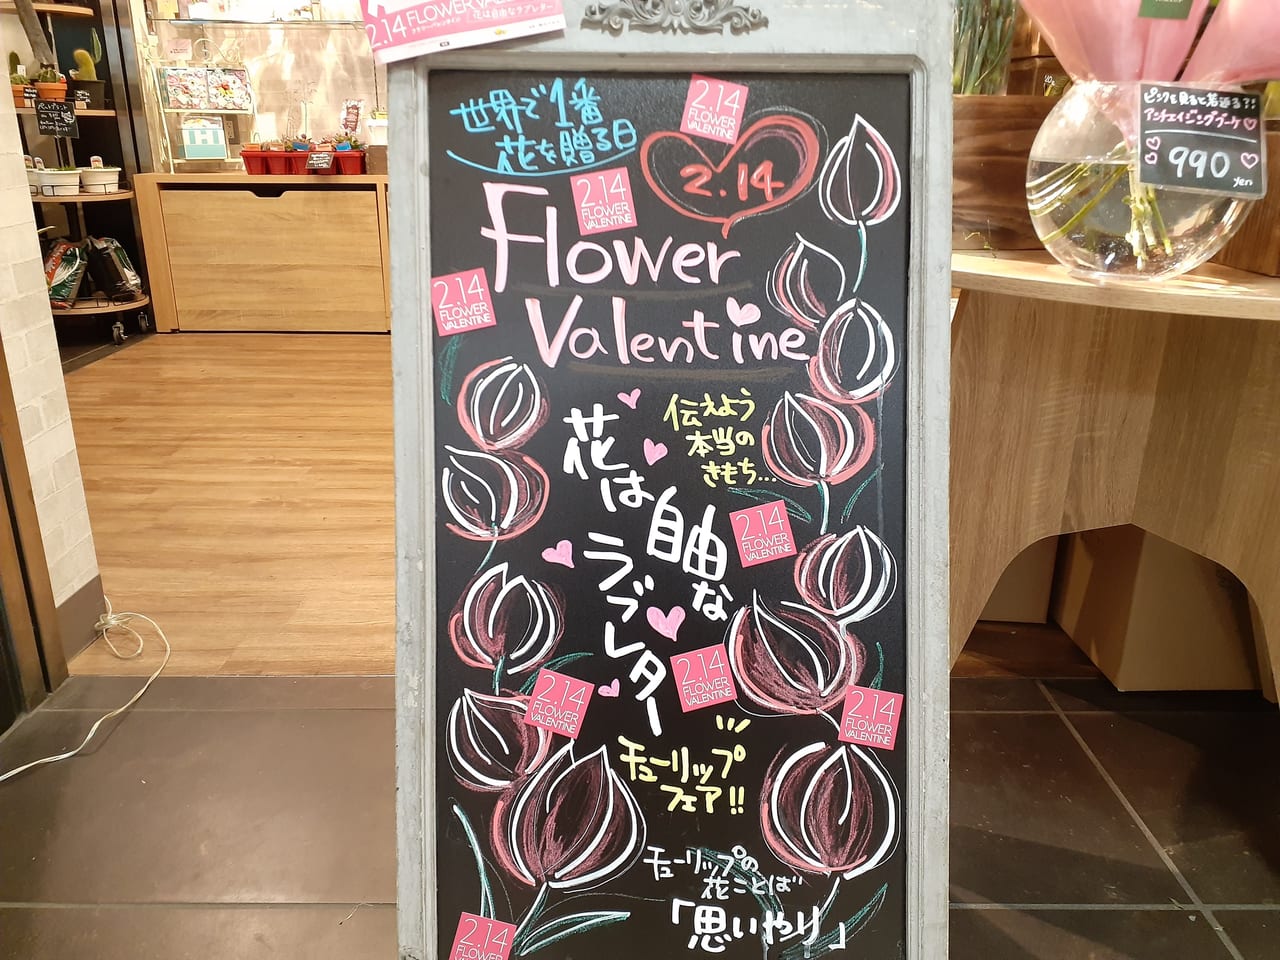 2.14 FLOWER VALENTINE
花は自由なラブレター
世界で1番
花を贈る日
2.14
FLOWER
VALENTINE
2.14
2.14
FLOWER
VALENTINE
Flower
2.14
FLOWER
VALENTINE
Valentine
伝えよう
本当の
きもち…
花は
自由な
ラブレター
2.14
FLOWER
VALENTINE
2.14
FLOWER
VALENTINE
2.14
FLOWER
VALENTINE
2.14
FLOWER
VALENTINE
チューリップ
フェア!!
チューリップの
花ことば
「思いやり」
2.14
FLOWER
ピンクを見ると若返る?!
アンチエイジングブーケ♡
990
yen